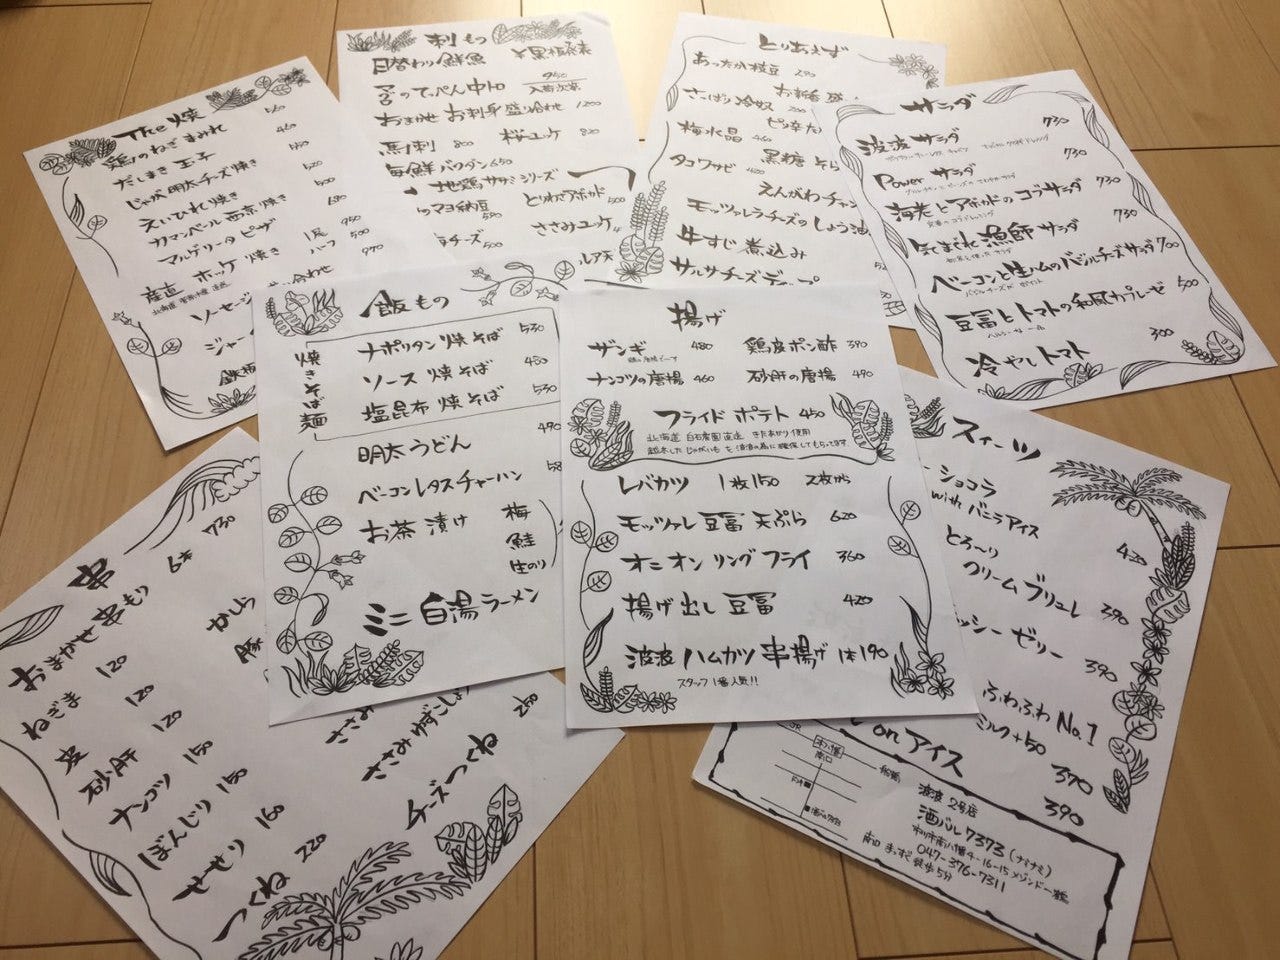 The 焼
鶏のねぎまみれ 560
だしまき玉子 460
じゃが明太チーズ焼き
えいひれ焼き 520
カマンベール西京焼き 500
マルゲリータピザ 680
産直 ホッケ焼き 1尾 950
ハーフ 500
ソーセージ 970
刺もの
日替わり鮮魚
てっぺん中トロ 950
おまかせ お刺身盛り合わせ 1200
馬刺 800 桜ユッケ 800
海鮮バクダン 650
地鶏ササミシリーズ
マヨ納豆 580
とりわさアボカド 500
チーズ 500
ささみユッケ
とりあえず
あったか枝豆 290
さっぱり冷奴 200
梅水晶 460
タコワサビ 420
黒糖そら
えんがわチャン
モッツァレラチーズのしょう油
牛すじ煮込み
サルサチーズディップ
サラダ
波波サラダ 730
Powerサラダ 730
海老とアボカドのコブサラダ 730
気まぐれ漁師サラダ 730
ベーコンと生ハムのバジルチーズサラダ 700
豆冨とトマトの和風カプレーゼ 500
冷やしトマト 300
飯もの
焼きそば麺
ナポリタン焼そば 530
ソース焼そば 480
塩昆布焼そば 530
明太うどん 490
ベーコンレタスチャーハン 58
お茶漬け 梅
鮭
生のり
ミニ白湯ラーメン
揚げ
ザンギ 480 鶏皮ポン酢 390
ナンコツの唐揚 460 砂肝の唐揚 490
フライドポテト 450
北海道 白石農園直送 きたあかり使用
越冬したじゃがいもを波波の為に確保してもらってます
レバカツ 1枚150 2枚から
モッツァレ豆冨天ぷら 620
オニオンリングフライ 360
揚げ出し豆冨 420
波波ハムカツ串揚げ 1本190
スタッフ1番人気!!
串
おまかせ串もり 6本 730
ねぎま 120
皮 120
砂肝 120
ナンコツ 150
ぼんじり 150
せせり 160
つくね 220
かしら
豚
ささみ
ささみゆずこしょう
チーズつくね 250
スイーツ
ショコラ
with バニラアイス 420
とろ〜り
クリームブリュレ 390
ッシーゼリー 390
ふわふわ No.1 370
ミルク+50
on アイス 390
JR
南口
船橋
波波 2号店
酒バル 7373 (ナミナミ)
市川市南八幡4-16-15 メゾンドー鶴
047-376-7311
南口 まっすぐ 徒歩5分